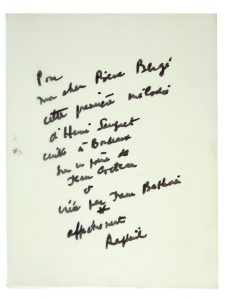 Pour
mon cher Pierre Bergé
cette première mélodie
d'Henri Sauguet
écrite à Bordeaux
sur un poème de
Jean Cocteau
et
créée par Jane Bathori
affectueusement
Raphaël